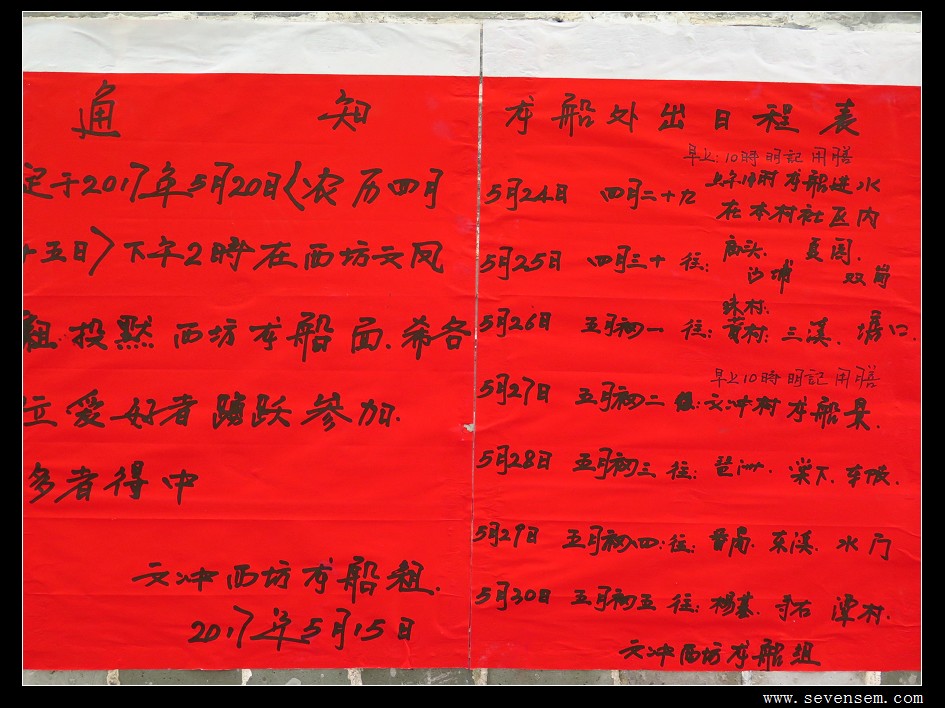 通 知
定于2017年5月20日(农历四月
十五日)下午2時在西坊文凤
祖.投默西坊龙船面.希各
位爱好者踊跃参加.
多者得中
文冲西坊龙船组.
2017年5月15日
龙船外出日程表
早上:10時明記用膳
5月24日 四月二十九 上午10时龙船进水
在本村社区内
5月25日 四月三十 往: 庙头. 夏园.
沙埔 双岗
珠村.
5月26日 五月初一 往: 黄村: 三溪. 塘口.
早上10時明記用膳
5月27日 五月初二 文冲村龙船景.
5月28日 五月初三 往: 琶洲. 棠下. 车陂.
5月29日 五月初四: 往: 东溪. 水门
5月30日 五月初五 往: 杨基. 寺右 潭村.
文冲西坊龙船组
www.sevensem.com